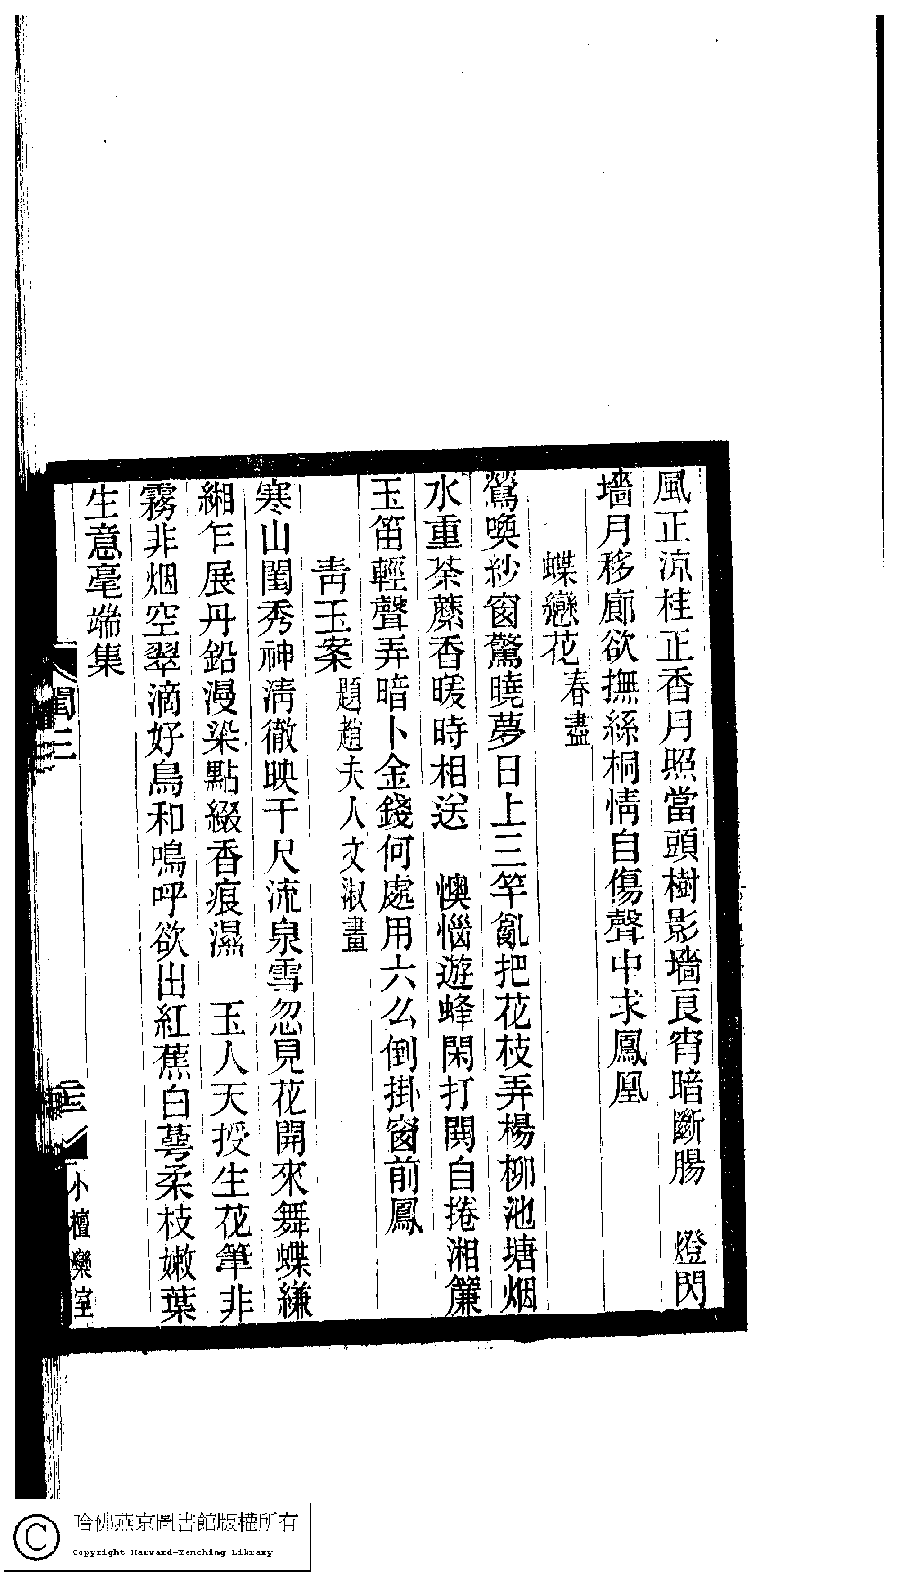 風正涼桂正香月照當頭樹影墻良宵暗斷腸　燈閃
墻月移廊欲撫絲桐情自傷聲中求鳳凰
蝶戀花春盡
鶯喚紗窗驚曉夢日上三竿亂把花枝弄楊柳池塘烟
水重荼蘼香暖時相送　懊惱遊蜂閑打鬨自捲湘簾
玉笛輕聲弄暗卜金錢何處用六么倒掛窗前鳳
青玉案題趙夫人文淑畫
寒山閨秀神清徹映千尺流泉雪忽見花開來舞蝶縑
緗乍展丹鉛漫染點綴香痕濕　玉人天授生花筆非
霧非烟空翠滴好鳥和鳴呼欲出紅蕉白萼柔枝嫩葉
生意毫端集
閨三
三
小檀欒室
哈佛燕京圖書館版權所有
Copyright Harvard-Yenching Library